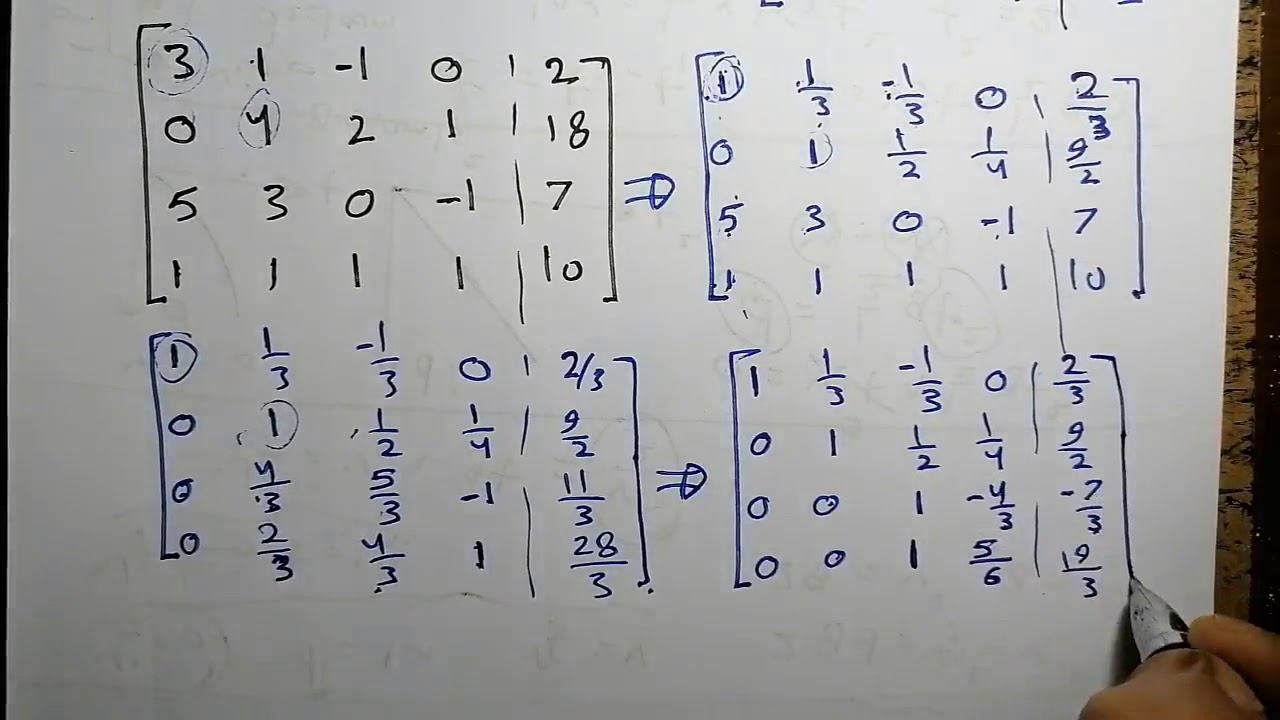 [ 3 1 -1 0 | 2 ]
[ 0 4 2 1 | 18 ]
[ 5 3 0 -1 | 7 ]
[ 1 1 1 1 | 10 ]
⇒
[ 1 1/3 -1/3 0 | 2/3 ]
[ 0 1 1/2 1/4 | 9/2 ]
[ 5 3 0 -1 | 7 ]
[ 1 1 1 1 | 10 ]
[ 1 1/3 -1/3 0 | 2/3 ]
[ 0 1 1/2 1/4 | 9/2 ]
[ 0 4/3 5/3 -1 | 11/3 ]
[ 0 2/3 4/3 1 | 28/3 ]
⇒
[ 1 1/3 -1/3 0 | 2/3 ]
[ 0 1 1/2 1/4 | 9/2 ]
[ 0 0 1 -4/3 | -7/3 ]
[ 0 0 1 5/6 | 19/3 ]